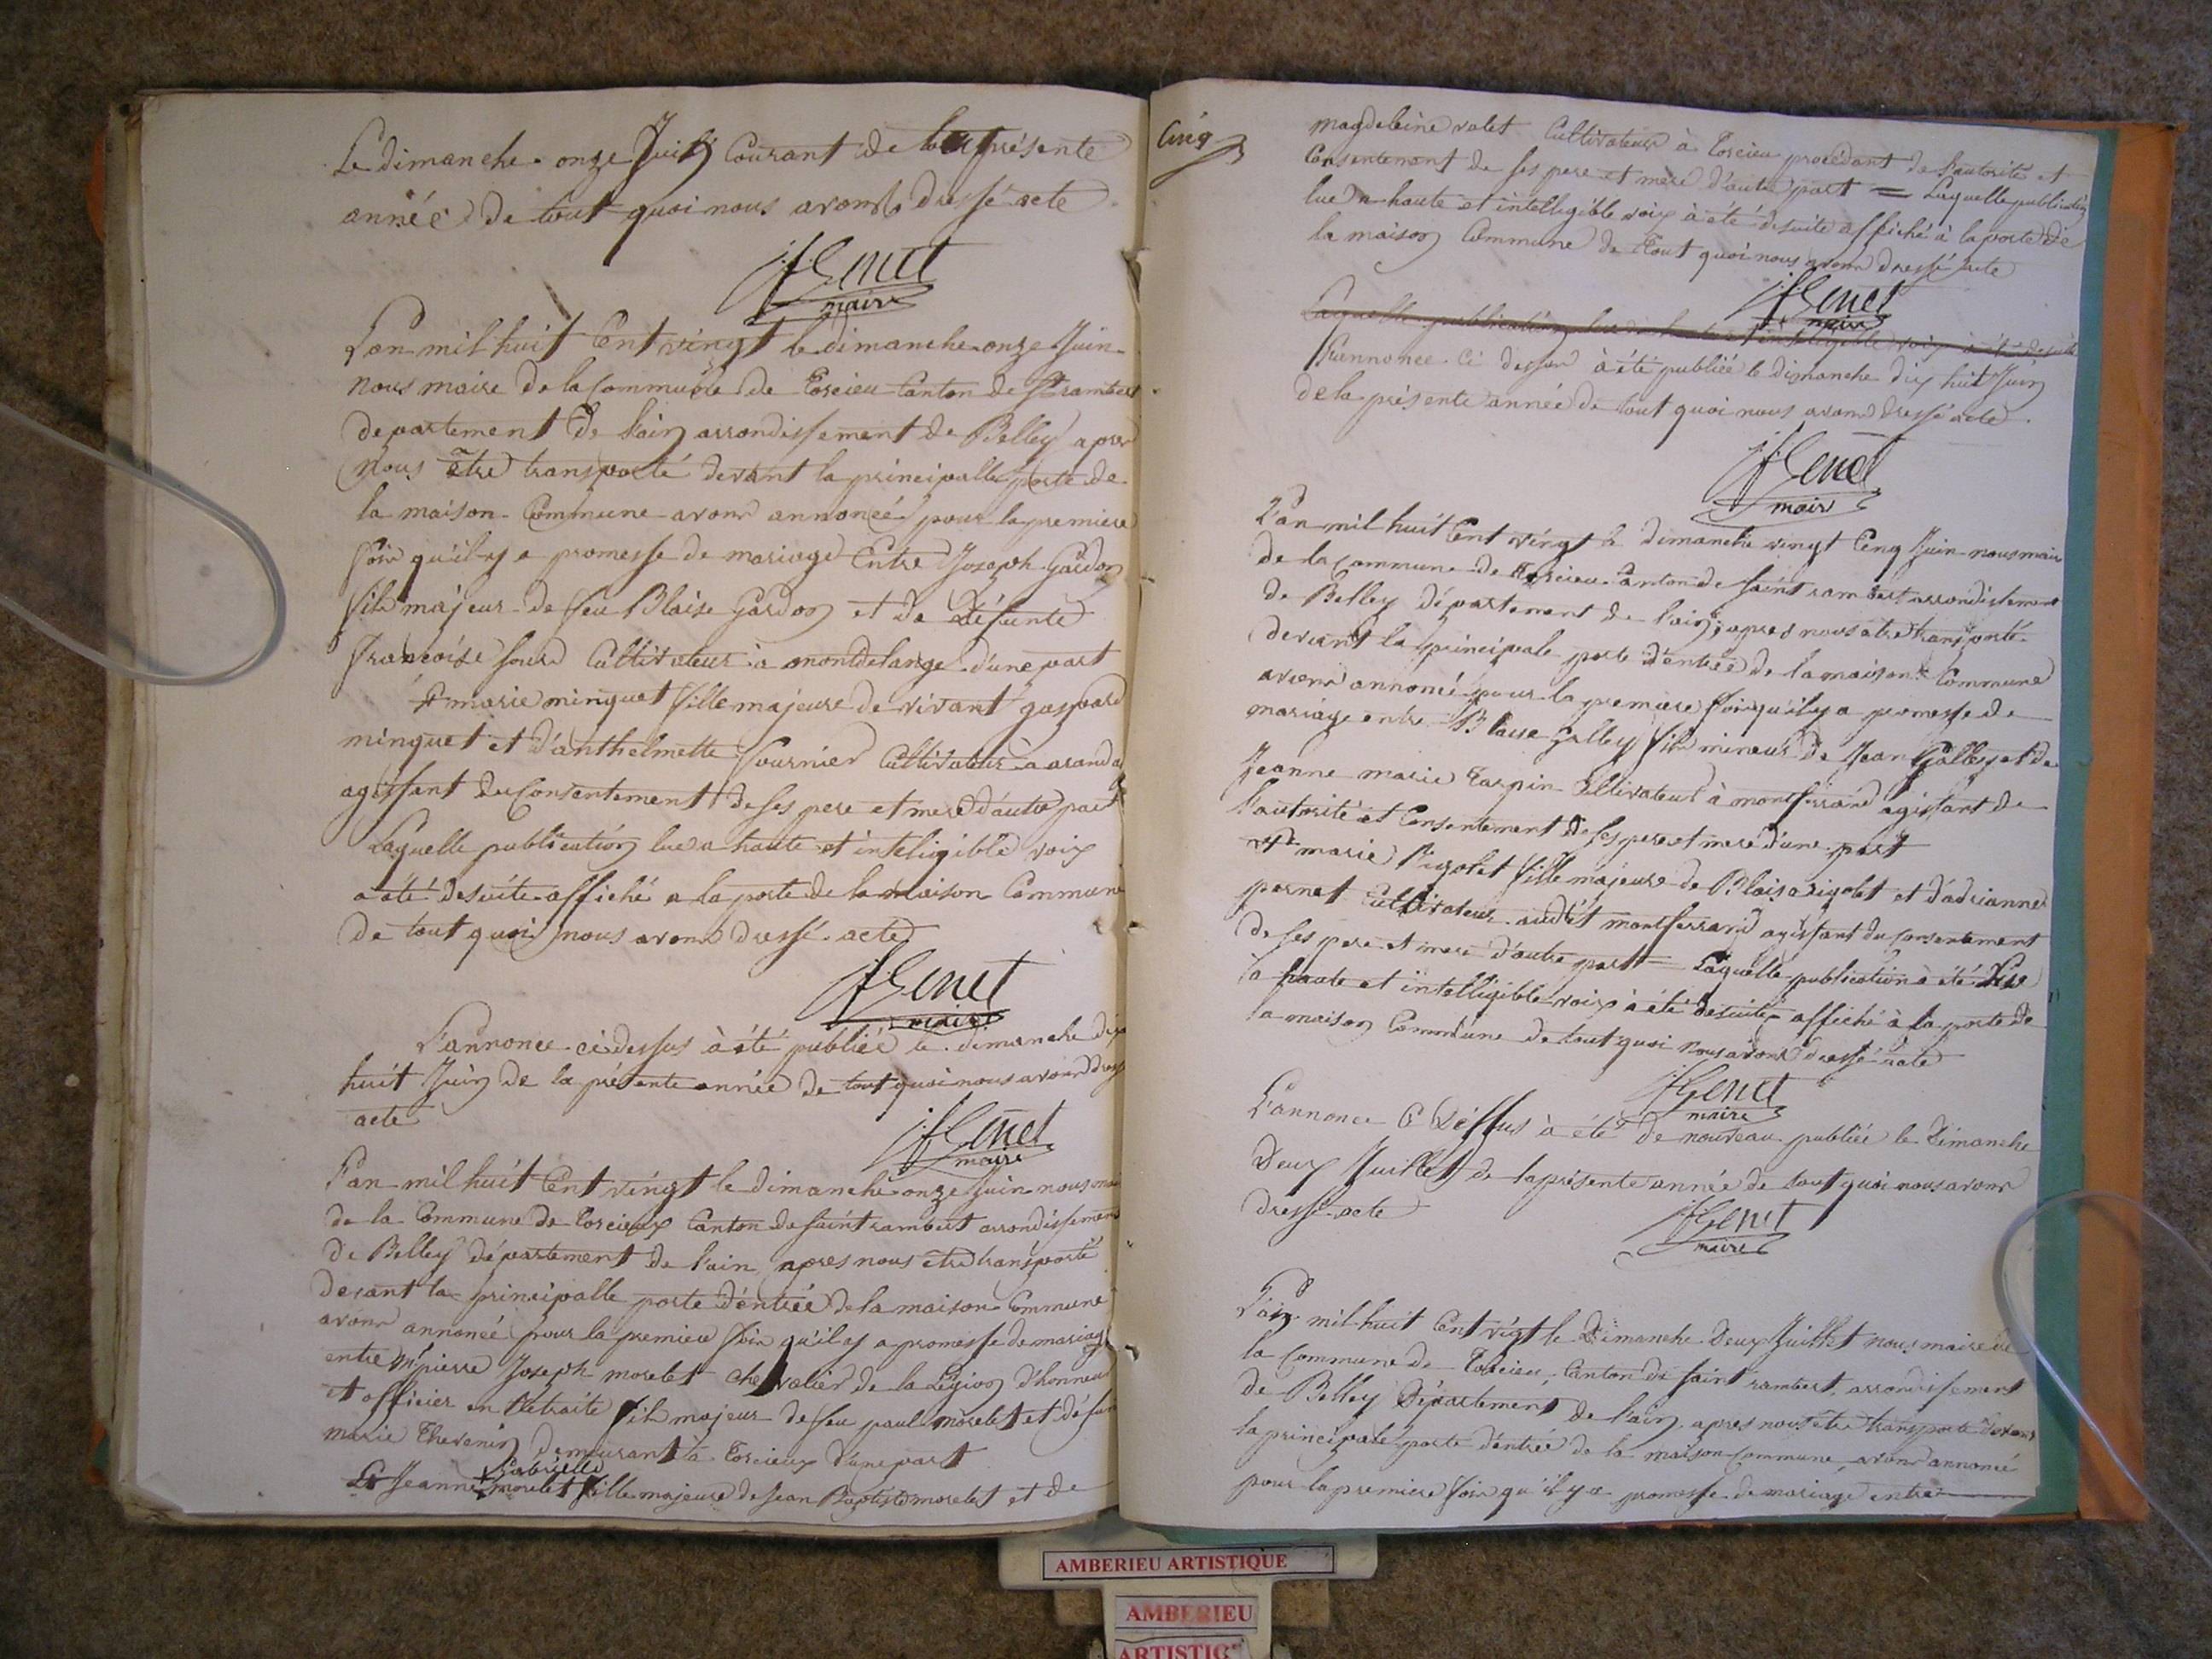 Le dimanche onze Juin Courant de la présente
année de tout quoi nous avons dressé acte
JfGenet
maire
L'an mil huit Cent vingt le dimanche onze Juin
nous maire de la Commune de Torcieu Canton de St rambert
departement de l'ain arrondissement de Belley apres
nous être transporté devant la principalle porte de
la maison Commune avons annoncé pour la premiere
fois qu'il y a promesse de mariage Entre Joseph Gardon
fils majeur de feu Blaise Gardon et de défunte
françoise Cultivateur à montdelange d'une part
Et marie minguet fille majeure de vivant gaspard
minguet et d'anthelmette fournier Cultivateur a arandas
agissant du Consentement de ses pere et mere d'autre part
Laquelle publication lue a haute et inteligible voix
a été desuite affiché a la porte de la maison Commune
de tout quoi nous avons dressé acte
JfGenet
maire
L'annonce ci dessus à été publiée le dimanche dix
huit Juin de la présente année de tout quoi nous avons dressé
acte
JfGenet
maire
L'an mil huit Cent vingt le dimanche onze juin nous maire
de la Commune de Torcieux Canton de saint rambert arrondissement
de Belley département de l'ain apres nous etre transporté
devant la principalle porte d'entrée de la maison Commune
avons annoncé pour la premiere fois qu'il y a promesse de mariage
entre Mr pierre Joseph morelet chevalier de la Légion d'honneur
et officier en Retraite fils majeur de feu paul morelet et défunte
marie Thevenin demeurant à Torcieux d'une part
Et Jeanne Gabrielle morelet fille majeure de Jean Baptiste morelet et de
Cinq
magdeleine valet Cultivateur à Torcieu procedant de l'autorité et
Consentement de ses pere et mere d'autre part = Laquelle publication
lue a haute et intelligible voix à été desuite affiché à la porte de
la maison Commune de Tout quoi nous avons dressé acte
JfGenet
maire
Laquelle publication lue a haute et intelligible voix a été desuite
L'annonce Ci dessus à été publiée le dimanche dix huit Juin
de la présente année de tout quoi nous avons dressé acte.
JfGenet
maire
L'an mil huit Cent vingt le dimanche vingt Cinq Juin nous maire
de la Commune de Torcieu Canton de saint rambert arrondissement
de Belley département de l'ain; apres nous etre transporté
devant la principale porte d'entrée de la maison Commune
avons annoncé pour la premiere fois qu'il y a promesse de
mariage entre Blaise Galley fils mineur de Jean Galley et de
Jeanne marie Tarpin Cultivateur à montferrand agissant de
l'autorité et Consentement de ses pere et mere d'une part
Et marie Rigolet fille majeure de Blaise rigolet et d'adrianne
pernet Cultivateur audit montferrand agissant du consentement
de ses pere et mere d'autre part = Laquelle publication à été Lue
a haute et intelligible voix à été desuite affiché à la porte de
la maison Commune de tout quoi nous avons dressé acte
JfGenet
maire
L'annonce Ci Dessus à été de nouveau publiée le Dimanche
Deux Juillet de la présente année de tout quoi nous avons
dressé acte
JfGenet
maire
L'an mil huit Cent vigt le Dimanche Deux Juillet nous maire de
la Commune de Torcieu, Canton de saint rambert, arrondissement
de Belley Département de l'ain, apres nous être transporté devant
la principale porte d'entrée de la maison Commune, avons annoncé
pour la premiere fois qu'il y a promesse de mariage entre
AMBERIEU ARTISTIQUE
AMBERIEU
ARTISTIQ